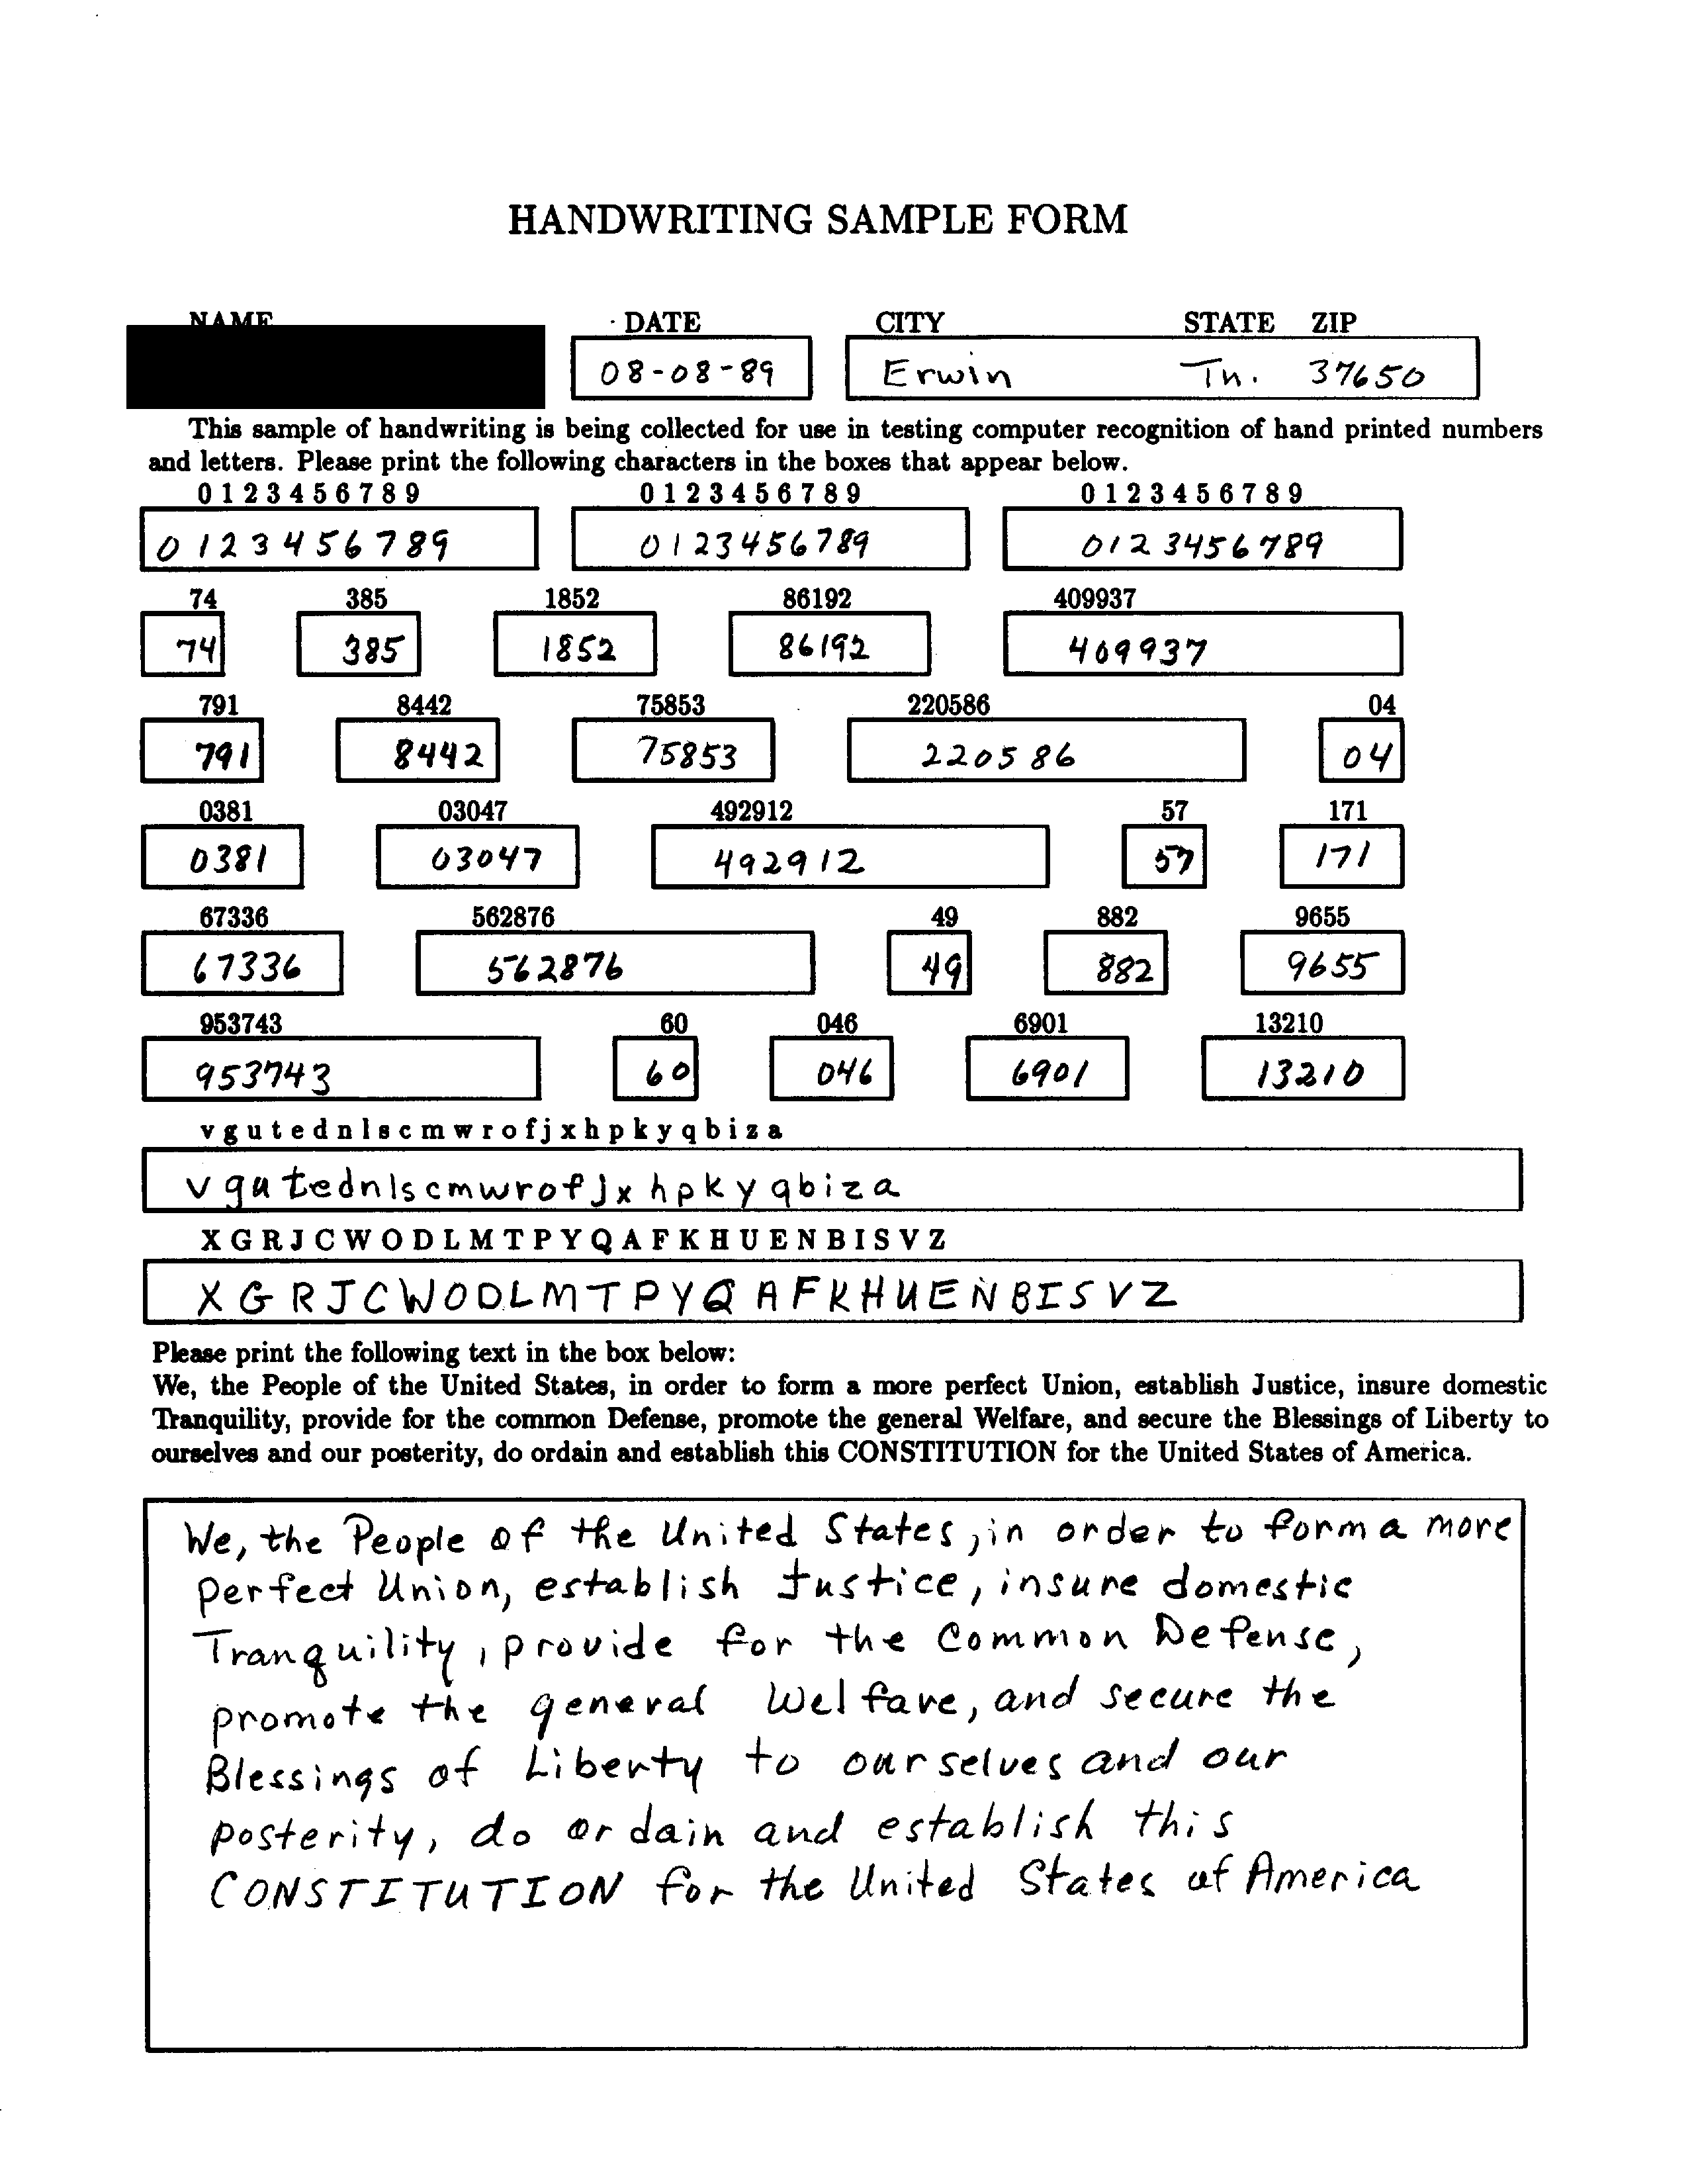 HANDWRITING SAMPLE FORM
NAME DATE CITY STATE ZIP
08-08-89 Erwin Tn. 37650
This sample of handwriting is being collected for use in testing computer recognition of hand printed numbers
and letters. Please print the following characters in the boxes that appear below.
0 1 2 3 4 5 6 7 8 9 0 1 2 3 4 5 6 7 8 9 0 1 2 3 4 5 6 7 8 9
0123456789 0123456789 0123456789
74 385 1852 86192 409937
74 385 1852 86192 409937
791 8442 75853 220586 04
791 8442 75853 220586 04
0381 03047 492912 57 171
0381 03047 492912 57 171
67336 562876 49 882 9655
67336 562876 49 882 9655
953743 60 046 6901 13210
953743 60 046 6901 13210
v g u t e d n l s c m w r o f j x h p k y q b i z a
v g u t e d n l s c m w r o f j x h p k y q b i z a
X G R J C W O D L M T P Y Q A F K H U E N B I S V Z
X G R J C W O D L M T P Y Q A F K H U E N B I S V Z
Please print the following text in the box below:
We, the People of the United States, in order to form a more perfect Union, establish Justice, insure domestic
Tranquility, provide for the common Defense, promote the general Welfare, and secure the Blessings of Liberty to
ourselves and our posterity, do ordain and establish this CONSTITUTION for the United States of America.
We, the People of the United States, in order to form a more
perfect Union, establish Justice, insure domestic
Tranquility, provide for the Common Defense,
promote the general Welfare, and secure the
Blessings of Liberty to ourselves and our
posterity, do ordain and establish this
CONSTITUTION for the United States of America